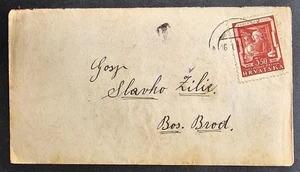 Gosp
Slavko Zilic
Bos. Brod.
16
3.50
HRVATSKA